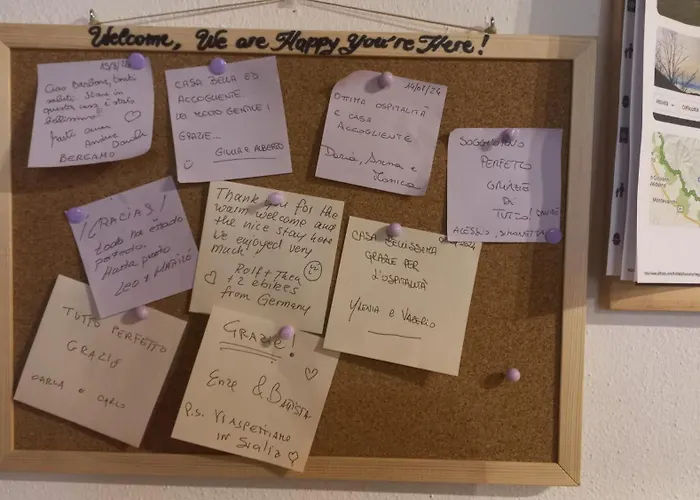 Welcome, We are Happy You're Here!
Ciao Barbara,
questa casa è stato
bellissimo
Andrea
BERGAMO
CASA BELLA ED
ACCOGLIENTE.
GENTILE!
GRAZIE...
GIULIA e ALBERTO
OTTIMA OSPITALITÀ
E CASA
ACCOGLIENTE
Daria, Anna e
Monica
SOGGIORNO
PERFETTO
GRAZIE
DI
TUTTO!
ALESSIO, SIMONETTA
¡GRACIAS!
Todo ha estado
perfecto.
Hasta pronto
Leo y
Thank you for the
warm welcome and
the nice stay here
We enjoyed very
much
Rolf + Thea
2 ebikers
from Germany
CASA BELLISSIMA
GRAZIE PER
L'OSPITALITÀ
YLENIA e VALERIO
TUTTO PERFETTO
GRAZIE
CARLA e CARLO
GRAZIE!
Enza & Battista
P.S. VI ASPETTIAMO
IN Sicilia